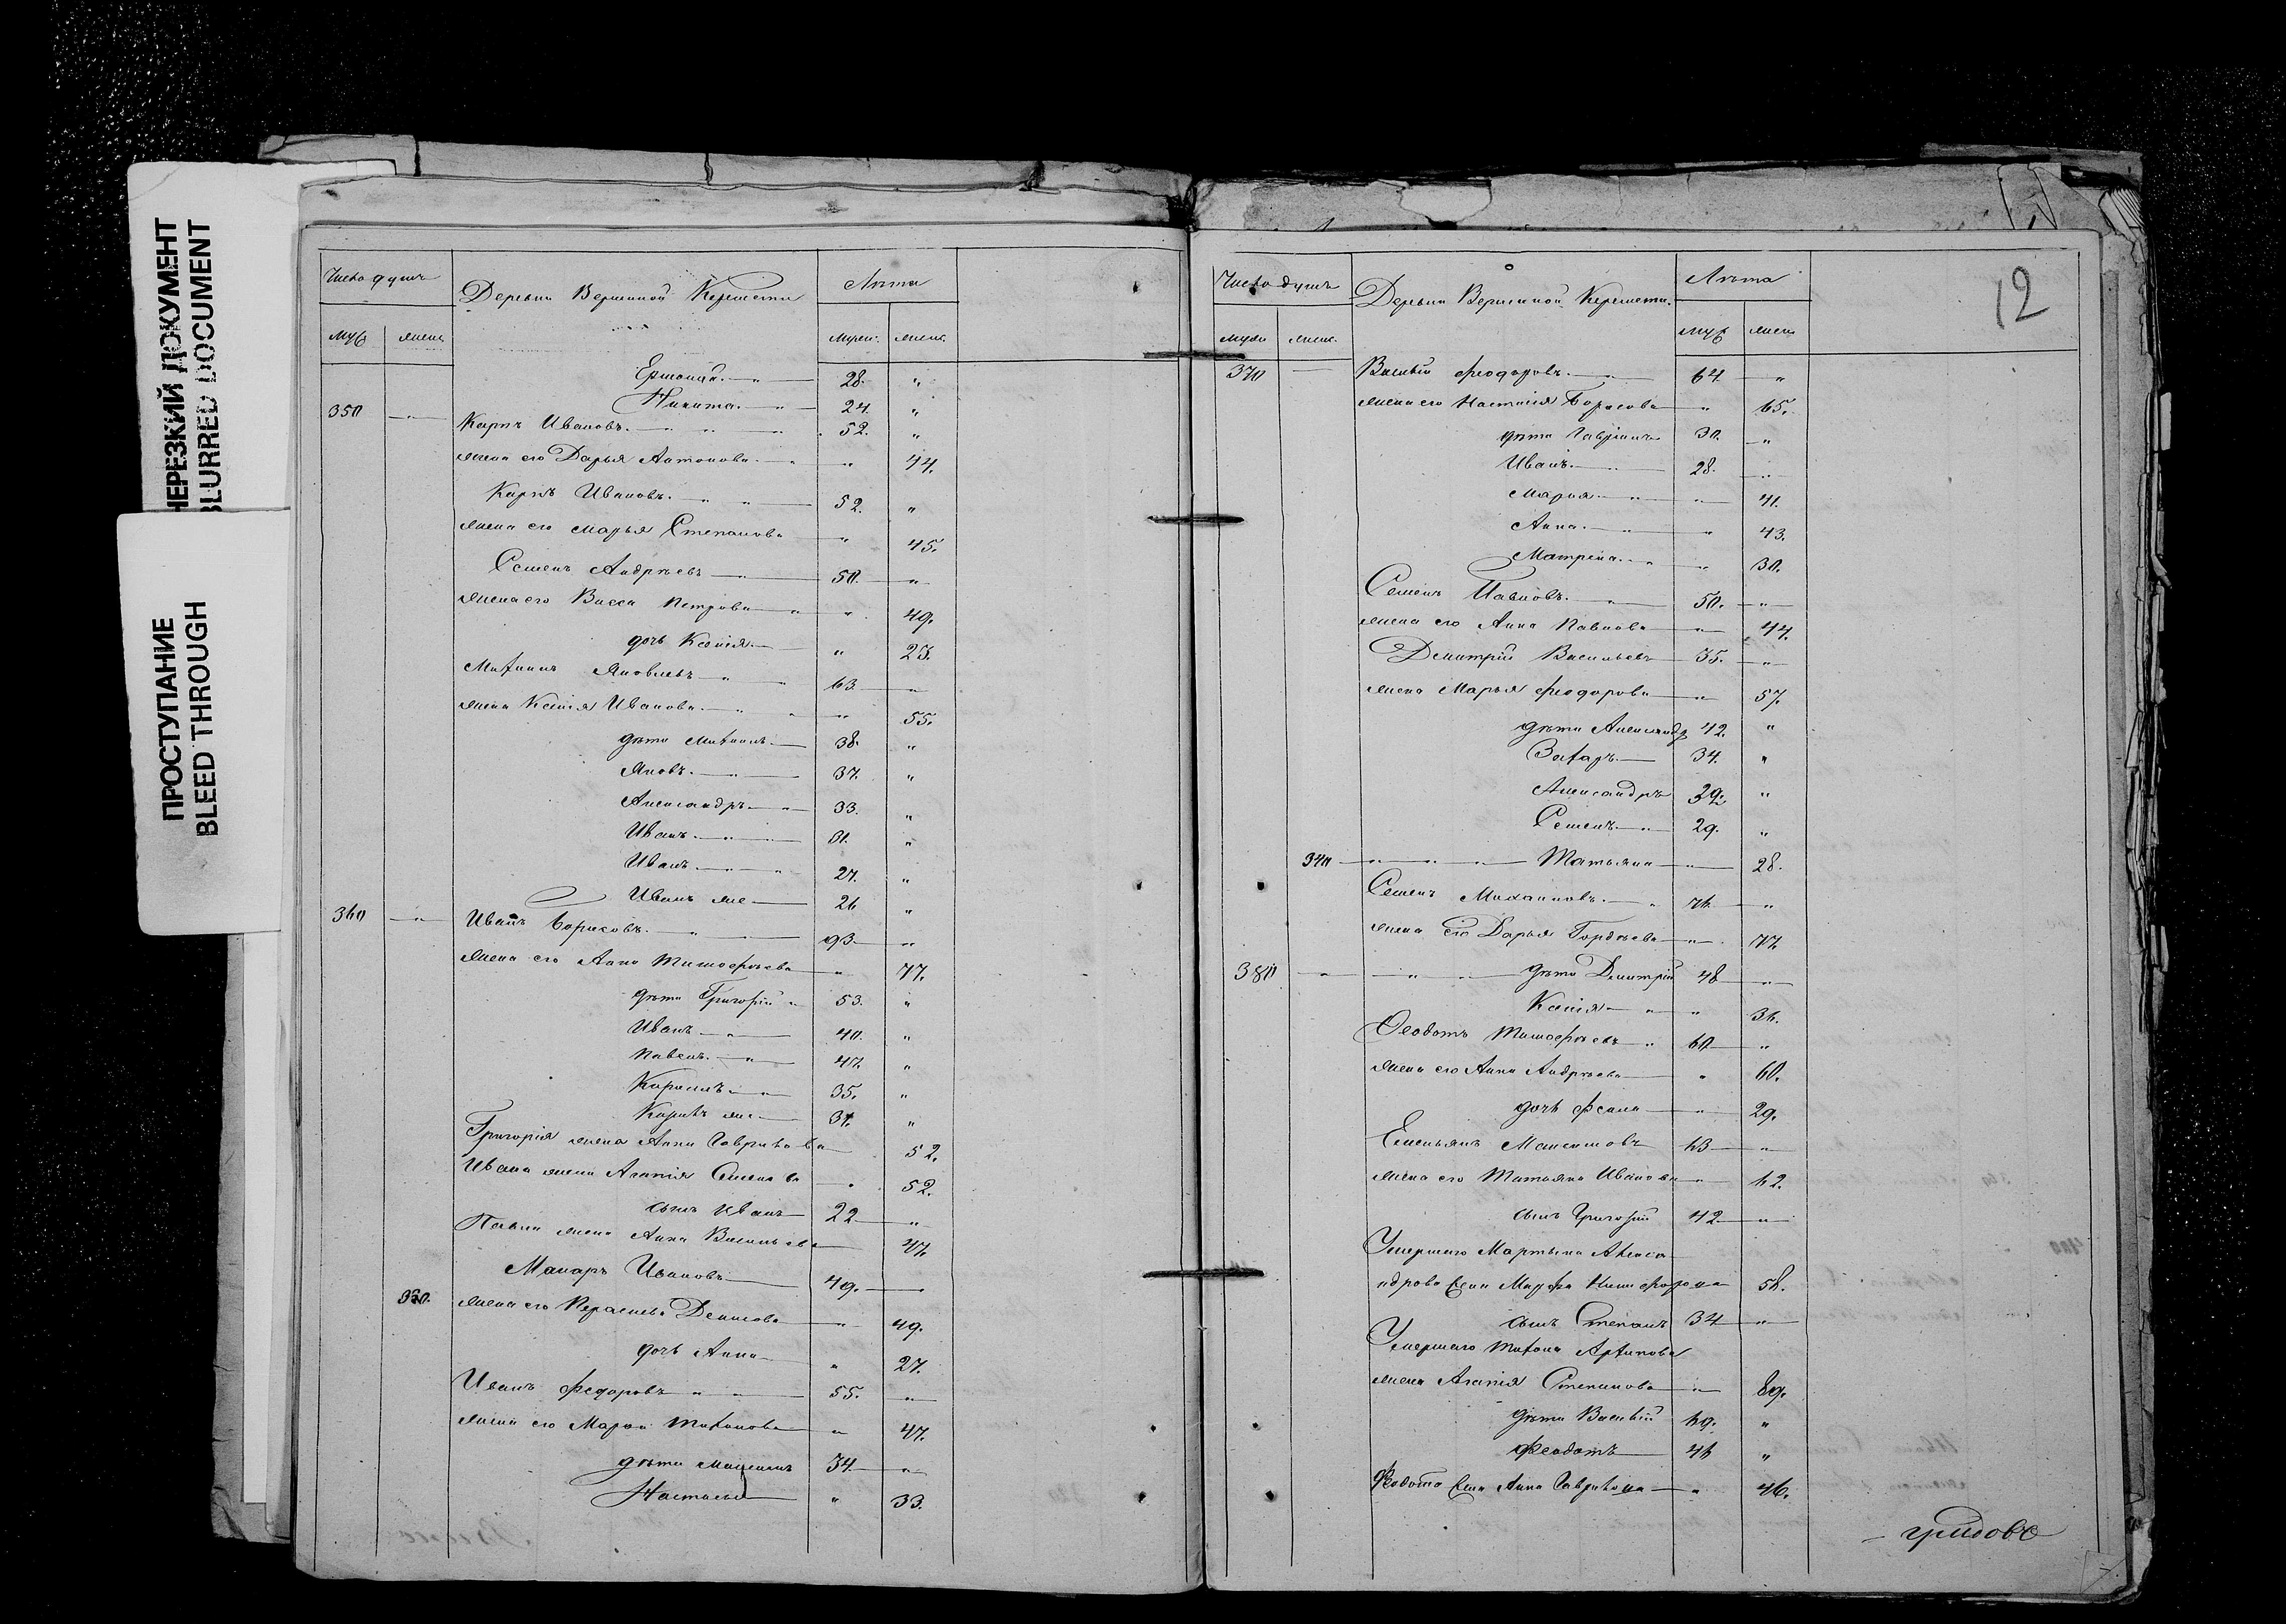 НЕРЕЗКИЙ ДОКУМЕНТ
BLURRED DOCUMENT
ПРОСТУПАНИЕ
BLEED THROUGH
Число душъ Деревни Вершиной Керемети Лѣта
муж женс мужс. женс.
Ермолай 28. "
350 Никита 24. "
Карпъ Ивановъ. 52. "
жена его Дарья Антонова " 44.
Карпъ Ивановъ. 52. "
жена его Марья Степанова " 45.
Семенъ Андрѣевъ 50. "
жена его Васса Петрова " 49.
дочь Ксенія " 23.
Михаилъ Яковлевъ 63. "
жена Ксенія Иванова " 55.
дѣти Михаилъ 38. "
Яковъ. 37. "
Александръ 33. "
Иванъ. 31. "
Иванъ 27. "
Иванъ же 26 "
360 Иванъ Борисовъ. 93. "
жена его Анна Тимофѣева " 77.
дѣти Григорій 53. "
Иванъ 40. "
Павелъ. 47. "
Кирилъ 35. "
же "
Григорія жена Анна Гаврилова 52.
Ивана жена Агапія Семенова " 52.
сынъ Иванъ 22 "
Павла жена Анна Васильева 47.
Макаръ Ивановъ 49.
жена его Денисова " 49.
дочь Анна " 27.
Иванъ Федоровъ 55. "
жена его Марья Тиханова " 47.
дѣти 34. "
Настасья " 33.
12
Число душъ Деревни Вершиной Керемети. Лѣта
мужс женс. муж женс
370 Василій Феодоровъ. 64. "
жена его Настасія Борисова " 65.
дѣти Гавріилъ 30. "
Иванъ. 28. "
Марья " 41.
Анна. " 43.
Матрена " 30.
Семенъ Павловъ. 50. "
жена его Анна Павлова " 44.
Дмитрій Васильевъ "
жена Марья Феодорова " 57.
дѣти Александр 42. "
Захаръ. 34. "
Александръ "
Семенъ 29. "
340 Татьяна " 28.
Семенъ Михаиловъ. 76. "
жена его Дарья Гордѣева " 77.
380 дѣти Дмитрій 48 "
Ксенія " 36.
Феодотъ Тимофѣевъ 60 "
жена его Анна Андрѣева " 60.
дочь " 29.
Емельянъ Максимовъ 63 "
жена его Татьяна Иванова " 62.
сынъ Григорій 42 "
Умершаго Мартына Алекса
ндрова жена Марфа Никифорова 58.
сынъ Степанъ 34 "
Умершаго Тихона Архипова
жена Агапія Степанова " 89.
дѣти Василій 69. "
Феодотъ 46 "
Федота жена Анна Гаврилова " 46.